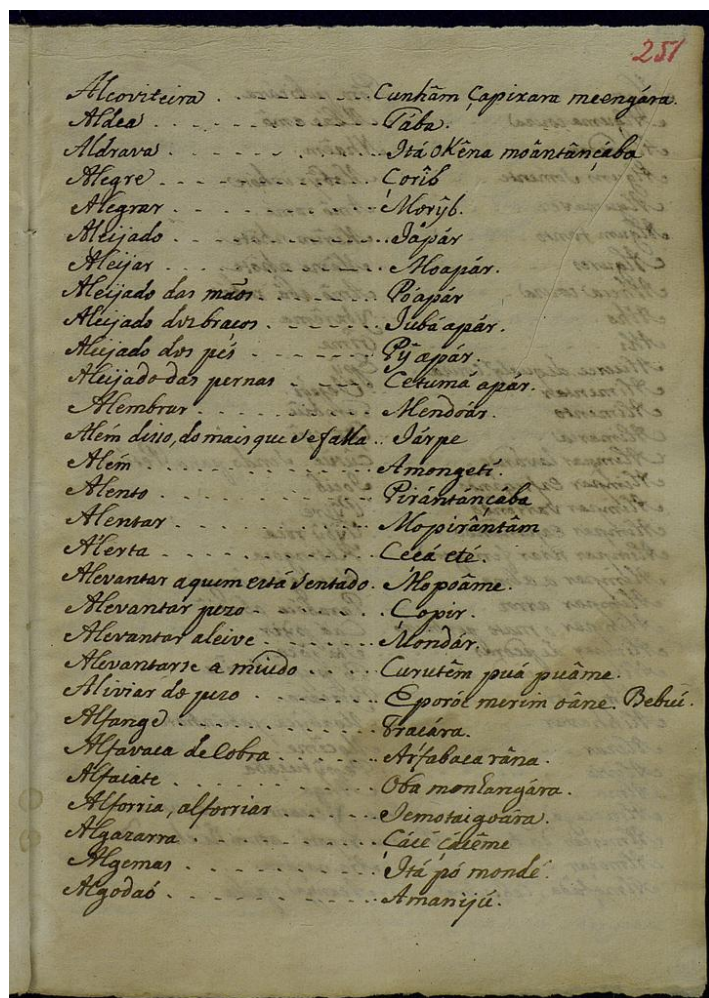 251
Alcoviteira . . . . . . . . Cunhãm Çapixara meengára.
Aldea . . . . . . . . Tába.
Aldrava . . . . . . . . Itá oKêna moântânçába
Alegre . . . . . . . . Çorîb
Alegrar . . . . . . . . Morŷb.
Aleijado . . . . . . . . Iãpár
Aleijar . . . . . . . . Moapár.
Aleijado das mãos . . . . . . Pó apár
Aleijado dos braços . . . . . . Jubá apár.
Aleijado dos pés . . . . . . Pŷ apár.
Aleijado das pernas . . . . . Cetumá apár.
Alembrar . . . . . . . . Mendóár.
Além disso, do mais que se falla . . Járpe
Além . . . . . . . . Amongetí.
Alento . . . . . . . . Pirántánçába
Alentar . . . . . . . . Mopirântâm
Alerta . . . . . . . . Ceçá eté.
Alevantar a quem está sentado . Mopoâme.
Alevantar pezo . . . . . . Çopir.
Alevantar aleive . . . . . . Mondár.
Alevantarse a miudo . . . . Curutêm puá puâme.
Aliviar do pezo . . . . . . merim oâne. Bebuí.
Alfange . . . . . . . . Traçára.
Alfavaca de Cobra . . . . . . Arfabaca râna.
Alfaiate . . . . . . . . Oba monhangára.
Alforria, alforriar . . . . . Jemotaigoára.
Algazarra . . . . . . . . Çácê çácême
Algemas . . . . . . . . Itá pó mondé.
Algodaó . . . . . . . . Amanijú.